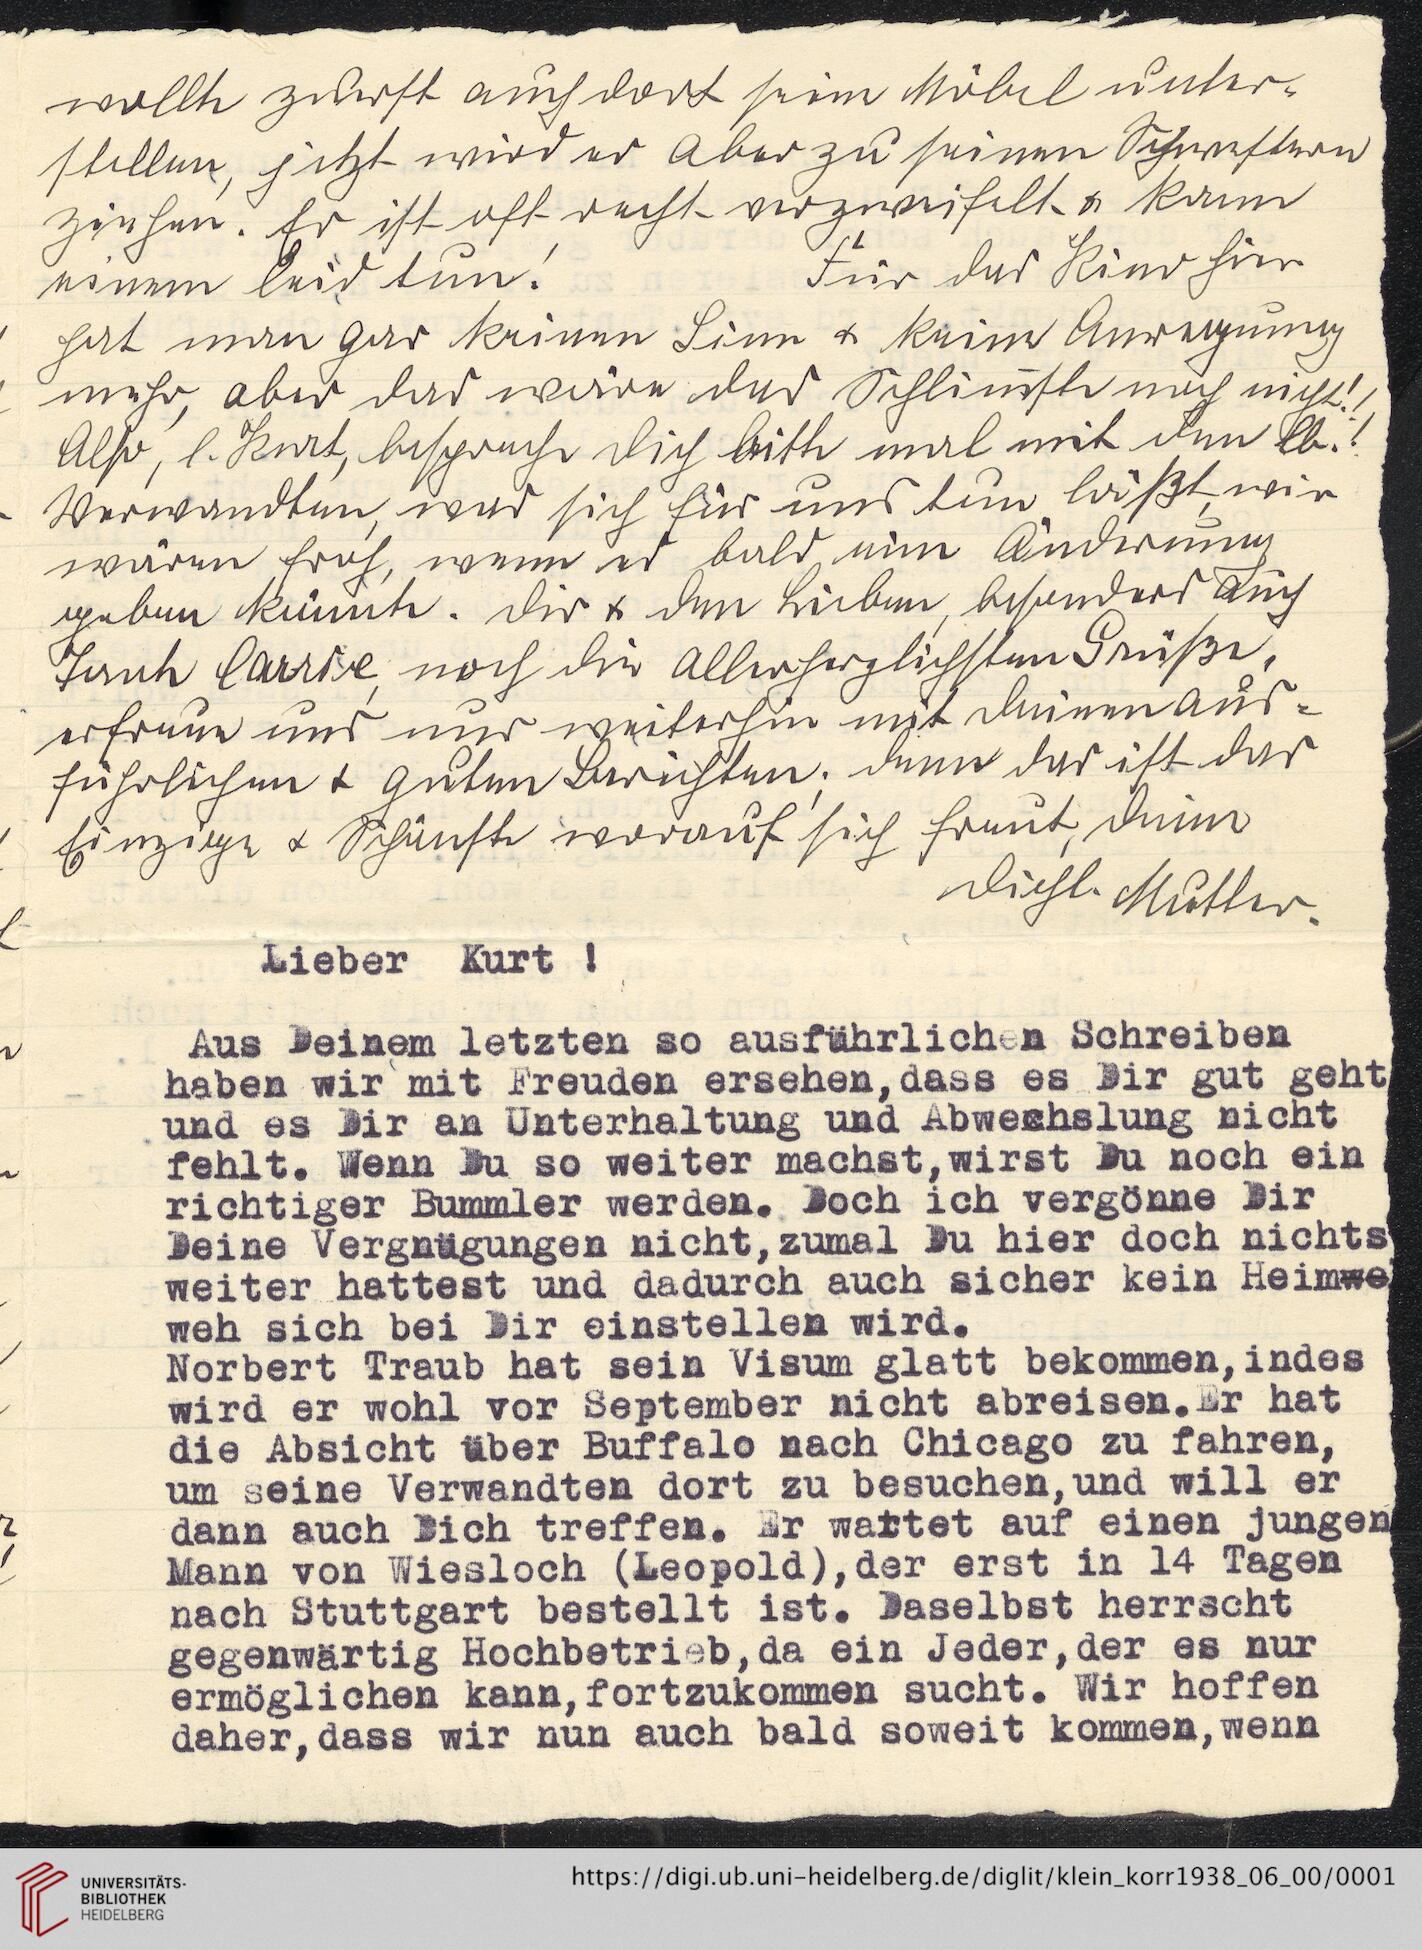 wollte zuerst auch dort seine Möbel unter-
stellen, jetzt wird er aber zu seinen Schwestern
ziehen. Er ist oft recht verzweifelt & kann
einem leid tun! Für das Kino hier
hat man gar keinen Sinn & keine Anregung
mehr, aber das wäre das Schlimmste noch nicht!!
Also, l. Kurt, bespreche Dich bitte mal mit den lb.!
Verwandten, was sich für uns tun läßt, wir
wären froh, wenn es bald eine Änderung
geben könnte. Dir & den Lieben, besonders auch
Tante Carrie, noch die allerherzlichsten Grüße,
erfreue uns nur weiterhin mit Deinen aus-
führlichen & guten Berichten, denn das ist das
Einzige & Schönste worauf sich freut, Deine
Dichl. Mutter.
Lieber Kurt !
Aus Deinem letzten so ausführlichen Schreiben
haben wir mit Freuden ersehen,dass es Dir gut geht
und es Dir an Unterhaltung und Abwechslung nicht
fehlt. Wenn Du so weiter machst,wirst Du noch ein
richtiger Bummler werden. Doch ich vergönne Dir
Deine Vergnügungen nicht,zumal Du hier doch nichts
weiter hattest und dadurch auch sicher kein Heimwe
weh sich bei Dir einstellen wird.
Norbert Traub hat sein Visum glatt bekommen,indes
wird er wohl vor September nicht abreisen.Er hat
die Absicht über Buffalo nach Chicago zu fahren,
um seine Verwandten dort zu besuchen,und will er
dann auch Dich treffen. Er wartet auf einen jungen
Mann von Wiesloch (Leopold),der erst in 14 Tagen
nach Stuttgart bestellt ist. Daselbst herrscht
gegenwärtig Hochbetrieb,da ein Jeder,der es nur
ermöglichen kann,fortzukommen sucht. Wir hoffen
daher,dass wir nun auch bald soweit kommen,wenn
UNIVERSITÄTS-
BIBLIOTHEK
HEIDELBERG
https://digi.ub.uni-heidelberg.de/diglit/klein_korr1938_06_00/0001